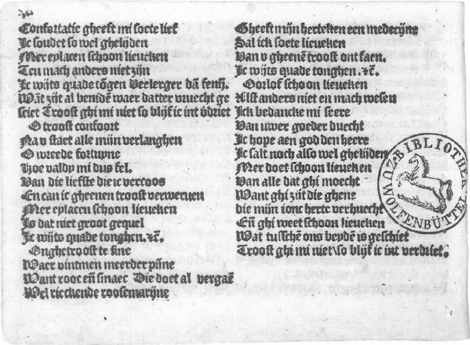 Confortatie gheeft mi soete lief
Je soudet so wel ghelijden
Mer eylacen schoon lieueken
Ten mach anders niet zijn
Je wijts quade tōgen Veelerger dā fenijn
Wāt zijt al benidē waer datter vruecht ge
sciet Troost ghi mi niet so blijf ic int v̄driet
O troost confoort
Na v staet alle mijn verlanghen
O wreede fortuyne
Hoe valdy mi dus fel.
Van die liefste die ic vercoos
En can ic gheenen troost verweruen
Mer eylacen schoon lieueken
Is dat niet groot gequel
Je wijts quade tonghen. ⁊c̄.
Onghetroost te sine
Waer vintmen meerder pine
Want rooc en̄ smaec Die doet al vergaē
Wel rieckende roosemarijne
Gheeft mijn herteken een medecijne
Sal ick soete lieueken
Van v gheenē troost ontfaen.
Je wijts quade tonghen. ⁊c̄.
Oorlof schoon lieueken
Alst anders niet en mach wesen
Ick bedancke mi seere
Van uwer goeder duecht
Ic hope aen god den heere
Ic salt noch also wel ghelijden
Mer doet schoon lieueken
Van alle dat ghi moecht
Want ghi zijt die ghene
die mijn ionc herte verhuecht
En̄ ghi weet schoon lieueken
Wat tusschē ons beydē is geschiet
Troost ghi mi niet so blijf ic int verdriet.
BIBLIOTHE
WOLFENBÜTTE